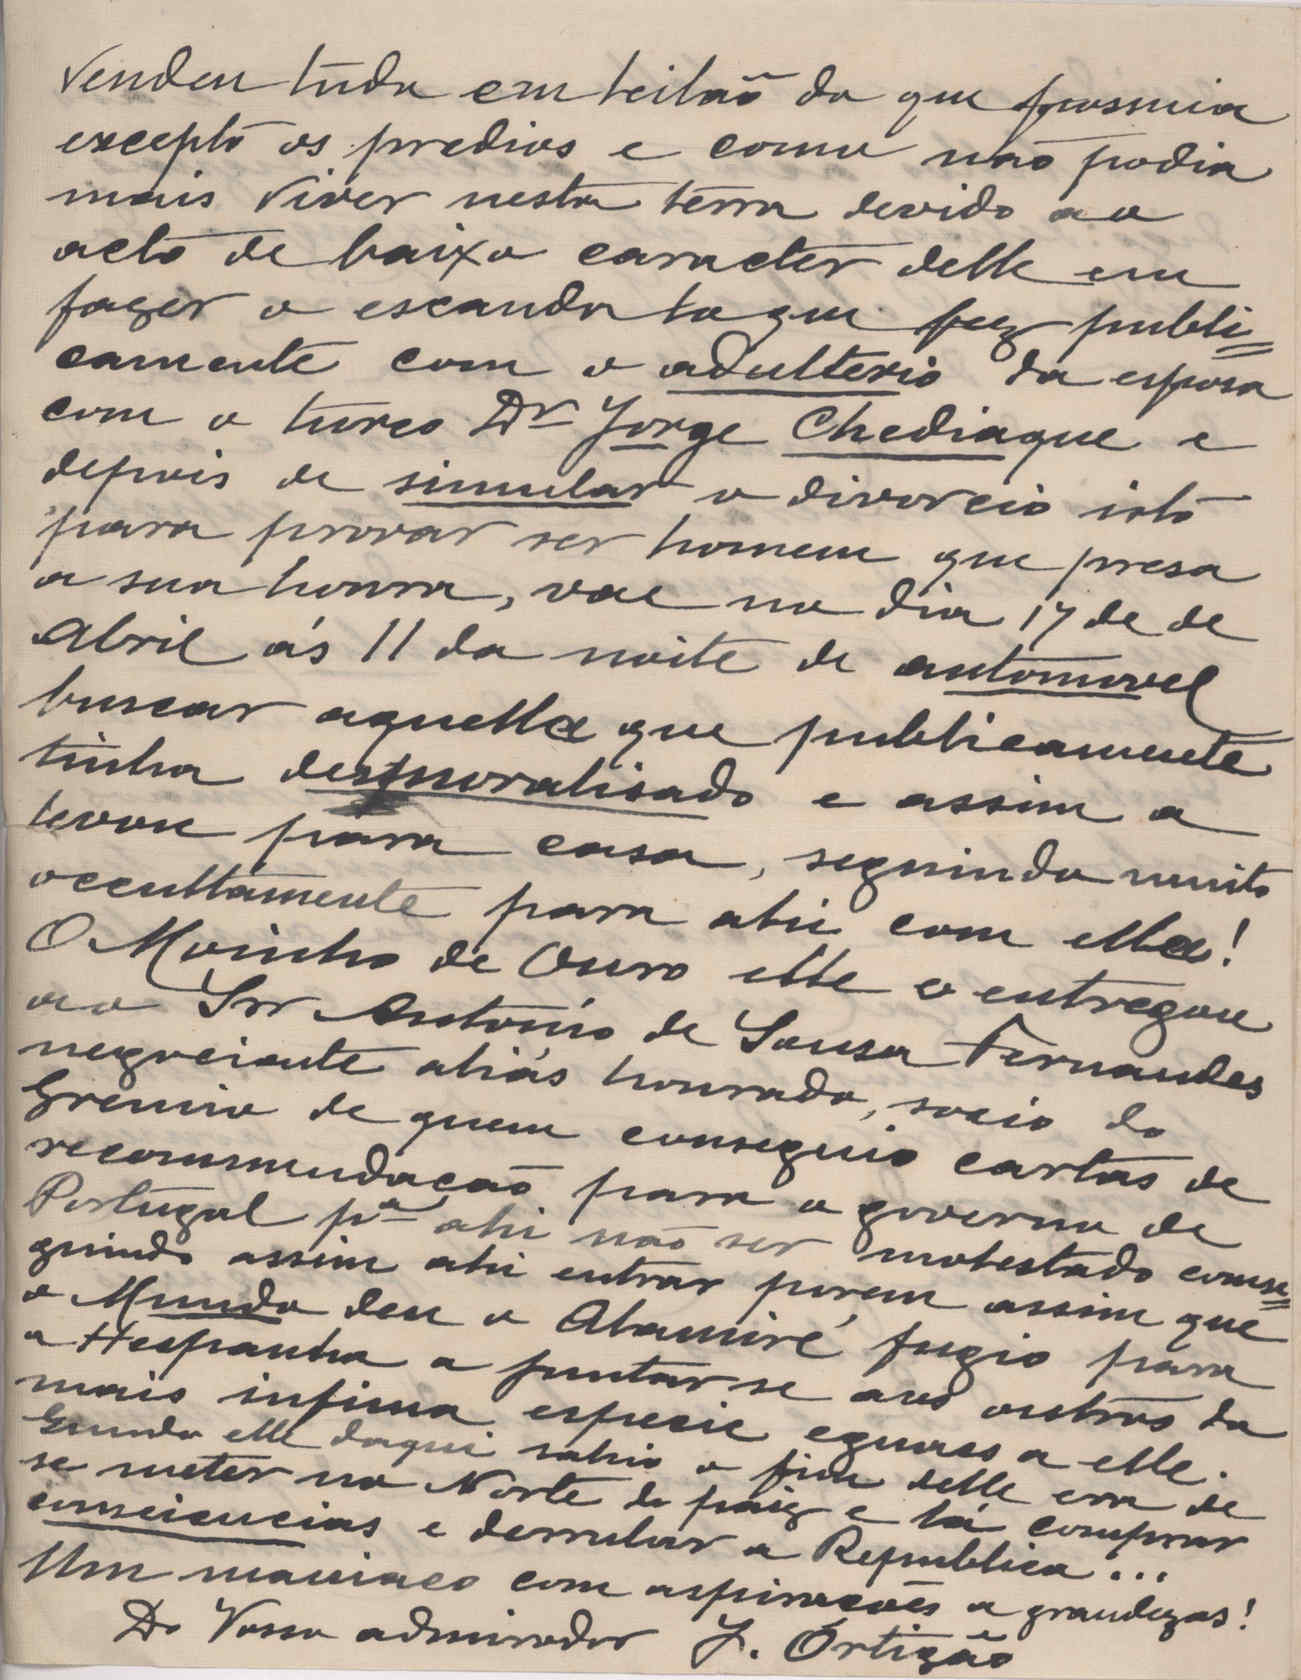 Vendeu tudo em leilão do que possuia
excepto os predios e como não podia
mais viver nesta terra devido ao
acto de baixo caracter delle em
fazer o escandalo que fez publi=
camente com o adulterio da esposa
com o turco Dr Jorge Chediaque e
depois de simular o divorcio isto
para provar ser homem que presa
a sua honra, vae no dia 17 de de
Abril ás 11 da noite de automovel
buscar aquella que publicamente
tinha desmoralisado e assim a
levou para casa, seguindo muito
occultamente para ahi com ella!
O Moinho de Ouro elle o entregou
ao Snr Antonio de Sousa Fernandes
negociante aliás honrado, socio do
Gremio de quem conseguio cartas de
recommendação para o governo de
Portugal pª ahi não ser molestado conse=
guindo assim ahi entrar porem assim que
o Mundo deu o Alamiré, fugio para
a Hespanha a juntar se aos outros da
mais infima especie eguaes a elle.
Quando elle daqui sahio o fim delle era de
se meter no Norte do paiz e lá comprar
consciencias e derrubar a Republica...
Um maniaco com aspirações a grandezas!
Do Vosso admirador J. Ortigão